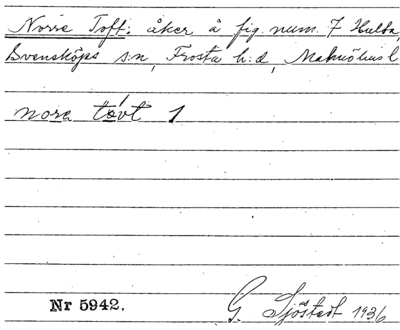 Norre Toft: åker å fig. num. 7 Hulta,
Svensköps s:n, Frosta h:d, Malmöhus l.
nora tóvt 1
Nr 5942.
G. Sjöstedt 1936